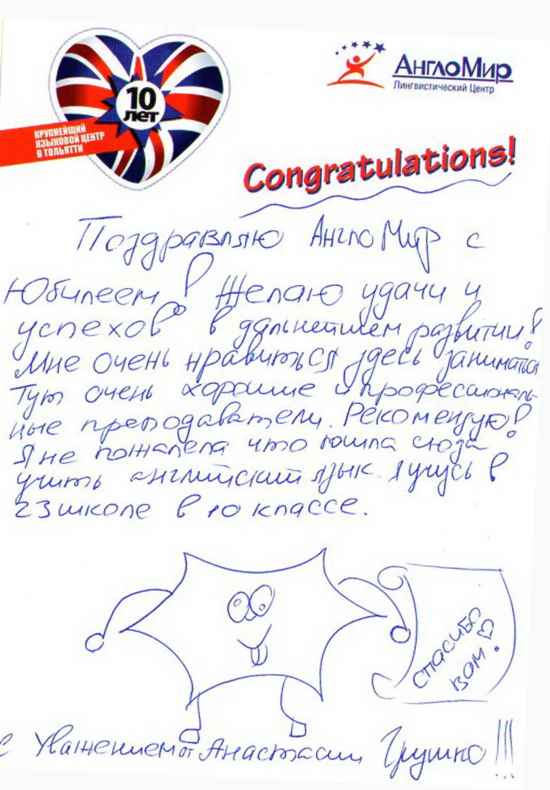 10
ЛЕТ
КРУПНЕЙШИЙ
ЯЗЫКОВОЙ ЦЕНТР
В ТОЛЬЯТТИ
АнглоМир
Лингвистический Центр
Congratulations!
Поздравляю АнглоМир с
Юбилеем! Желаю удачи и
успехов в дальнейшем развитии!
Мне очень нравиться здесь заниматся
Тут очень хорошие и професиональ-
ные преподаватели. Рекомендую!
Я не пожалела что пошла сюда
учить английский язык. Я учусь в
23 школе в 10 классе.
спасибо
вам!
с Уважением от Анастасии Грушко!!!